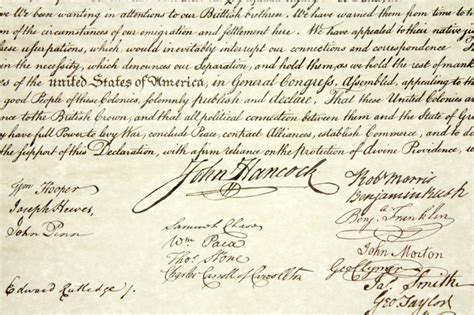 ave We been wanting in attentions to our Brittish brethren. We have warned them from time to tim
of the circumstances of our emigration and settlement here. We have appealed to their native ju
hese usurpations, which would inevitably interrupt our connections and correspondence
in the necessity, which denounces our Separation, and hold them, as we hold the rest of mank
es of the united States of America, in General Congress, Assembled, appealing to the
good People of these Colonies, solemnly publish and declare, That these United Colonies a
nce to the British Crown, and that all political connection between them and the State of Gr
y have full Power to levy War, conclude Peace, contract Alliances, establish Commerce, and to do
the support of this Declaration, with a firm reliance on the Protection of divine Providence, we
John Hancock
Wm Hooper
Joseph Hewes,
John Penn
Edward Rutledge /.
Samuel Chase
Wm Paca
Thos. Stone
Charles Carroll of Carrollton
Robt Morris
Benjamin Rush
Benj. Franklin
John Morton
Geo Clymer
Jas. Smith
Geo. Taylor